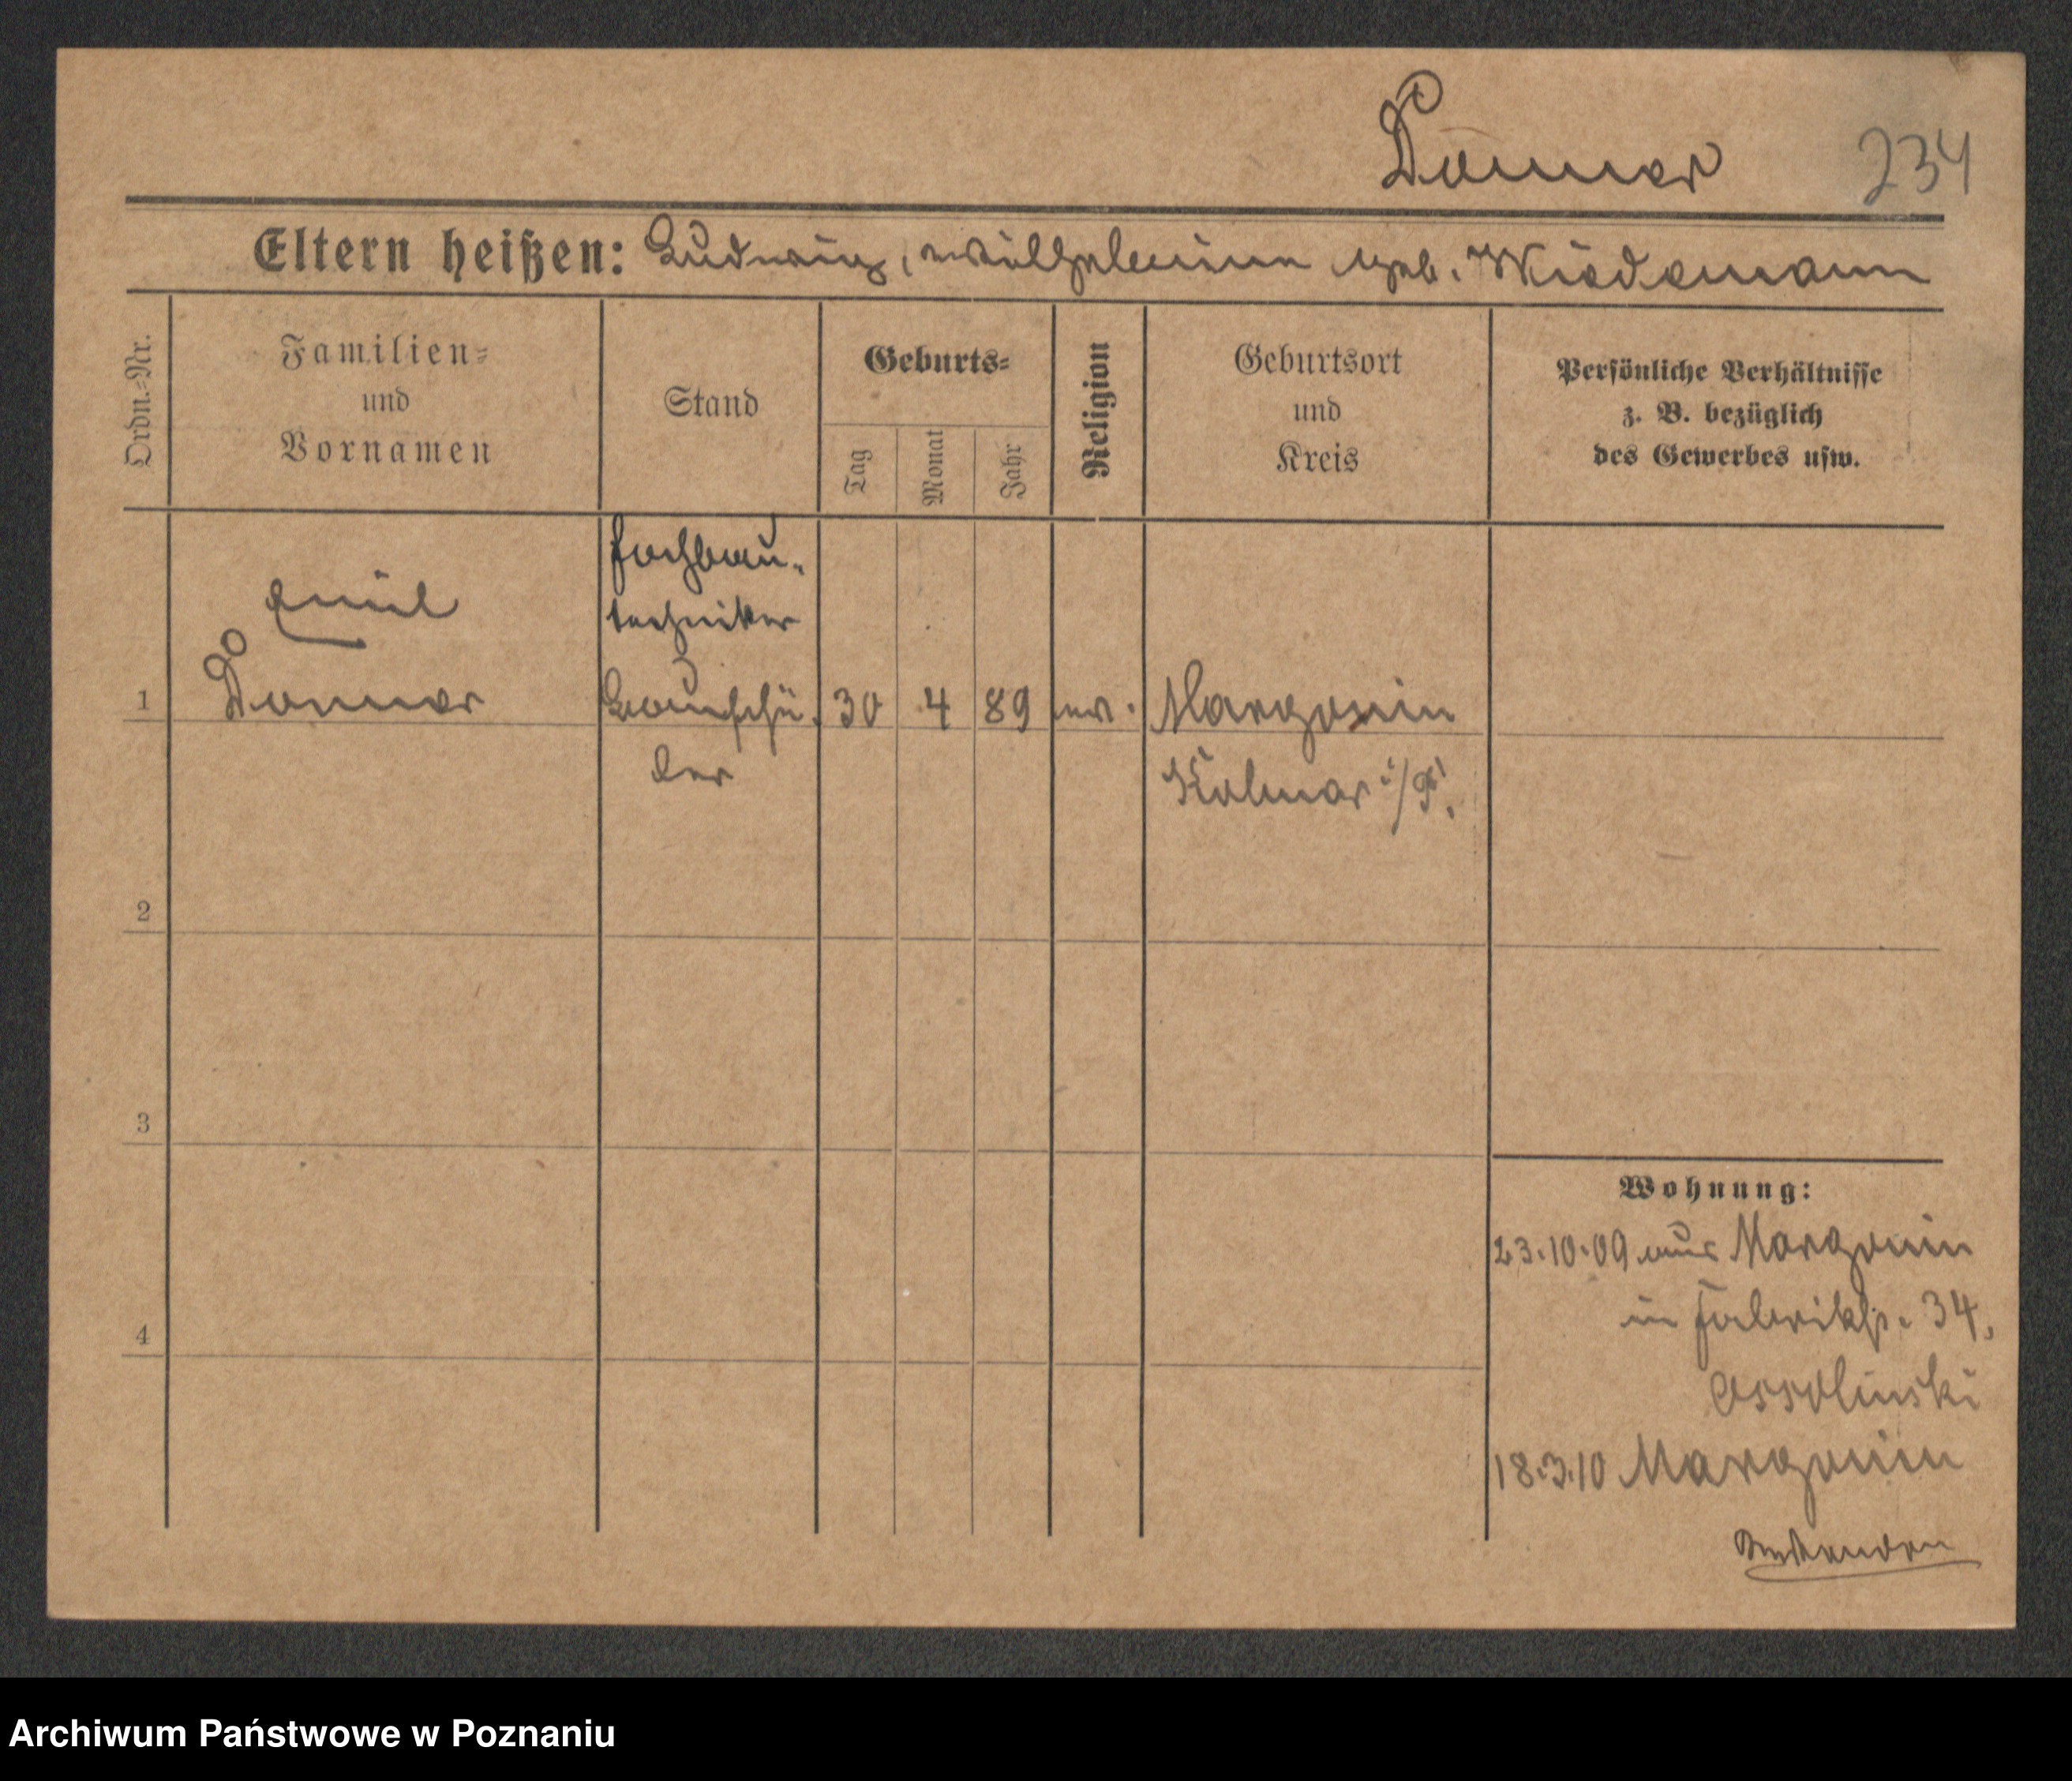 Donner 234
Eltern heißen: Ludwig, Wilhelmine geb. Wiedemann
Ordn.-Nr.
Familien-
und
Vornamen
Stand
Geburts-
Tag
Monat
Jahr
Religion
Geburtsort
und
Kreis
Persönliche Verhältnisse
z. B. bezüglich
des Gewerbes usw.
Emil
Donner
Hochbau-
techniker
Bauschü-
ler
1 30 4 89 ev. Margonin
Kolmar i/P.
2
3
4
Wohnung:
23.10.09 aus Margonin
in Fabrikstr. 34,
Ossolinski
18.3.10 Margonin
Archiwum Państwowe w Poznaniu